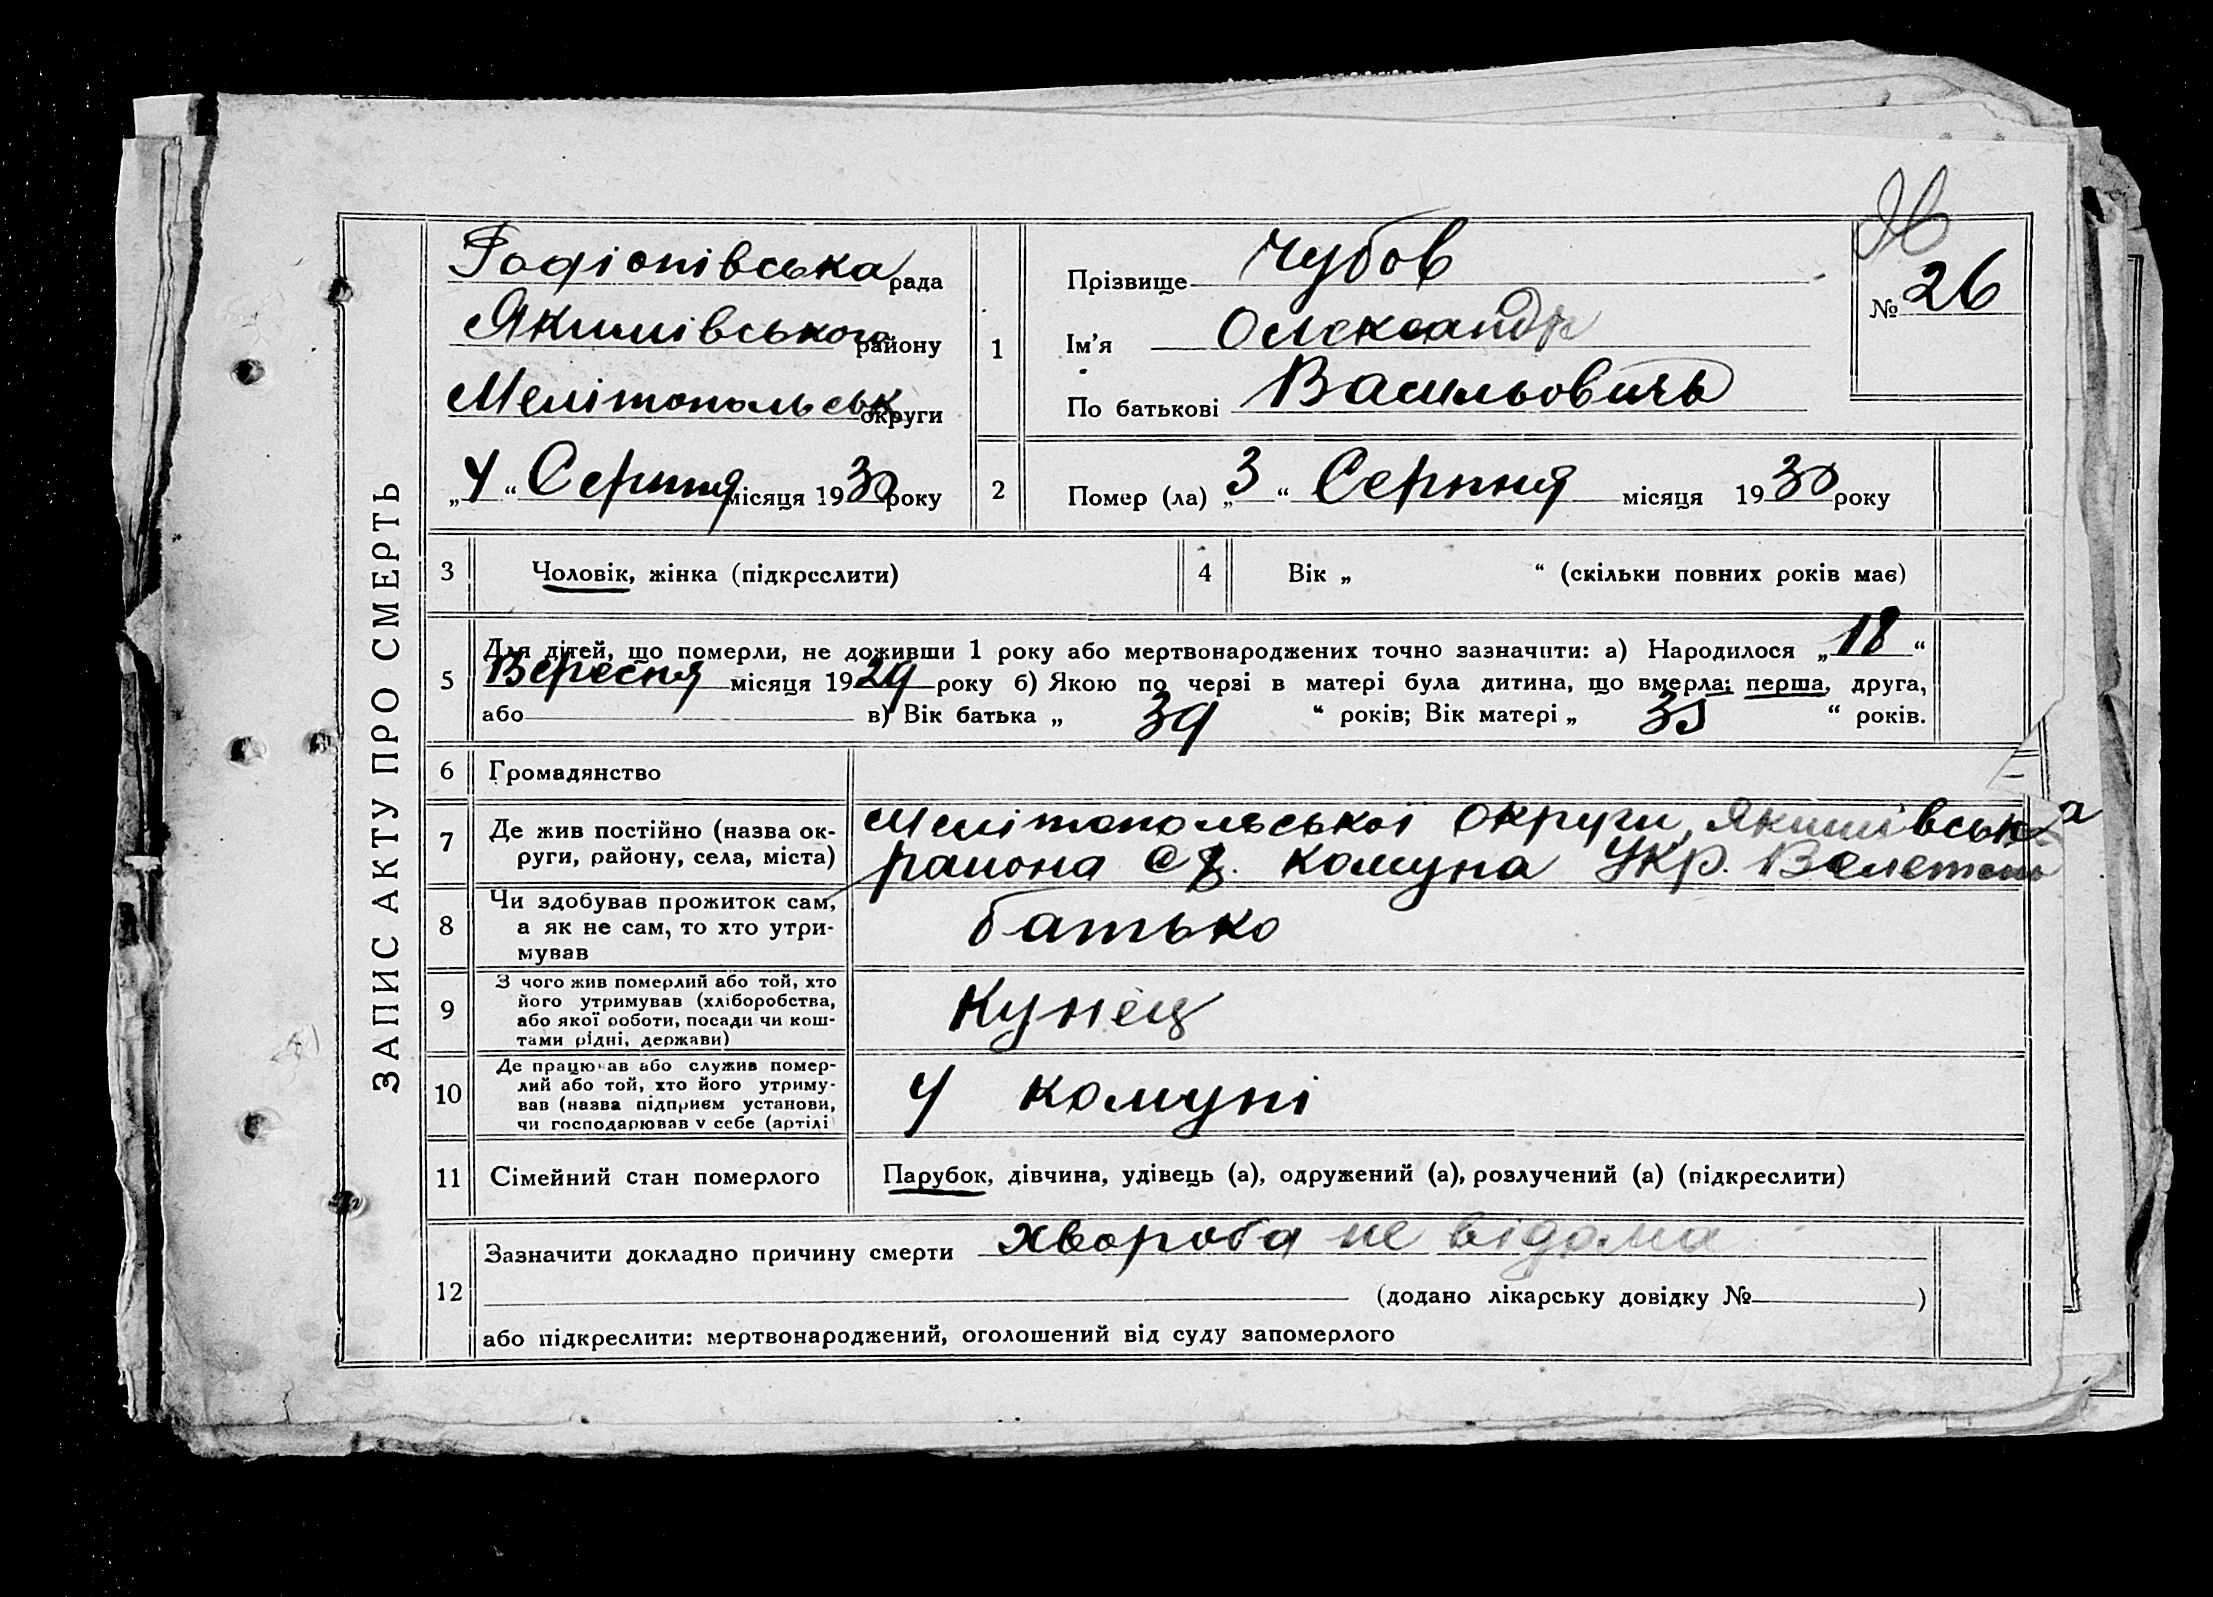 ЗАПИС АКТУ ПРО СМЕРТЬ
Радіонівська рада
Якимівського району
Мелітопольськ округи
„4“ Серпня місяця 1930 року
1
Прізвище Чубов
Ім'я Олександр
По батькові Васильовичь
№ 26
2
Помер (ла) „3“ Серпня місяця 1930 року
3
Чоловік, жінка (підкреслити)
4
Вік „ “ (скільки повних років має)
5
Для дітей, що померли, не доживши 1 року або мертвонароджених точно зазначити: а) Народилося „18“
Вересня місяця 1929 року б) Якою по черзі в матері була дитина, що вмерла; перша, друга,
або в) Вік батька „ 39 “ років; Вік матері „ “ років.
6
Громадянство
7
Де жив постійно (назва ок-
руги, району, села, міста)
Мелітопольської округи, Якимівська
района комуна Укр.
8
Чи здобував прожиток сам,
а як не сам, то хто утри-
мував
батько
9
З чого жив померлий або той, хто
його утримував (хліборобства,
або якої роботи, посади чи кош-
тами рідні, держави)
10
Де працював або служив помер-
лий або той, хто його утриму-
вав (назва підприєм установи,
чи господарював у себе (артілі
У комуні
11
Сімейний стан померлого
Парубок, дівчина, удівець (а), одружений (а), розлучений (а) (підкреслити)
12
Зазначити докладно причину смерти хвороба не відома
(додано лікарську довідку № )
або підкреслити: мертвонароджений, оголошений від суду запомерлого